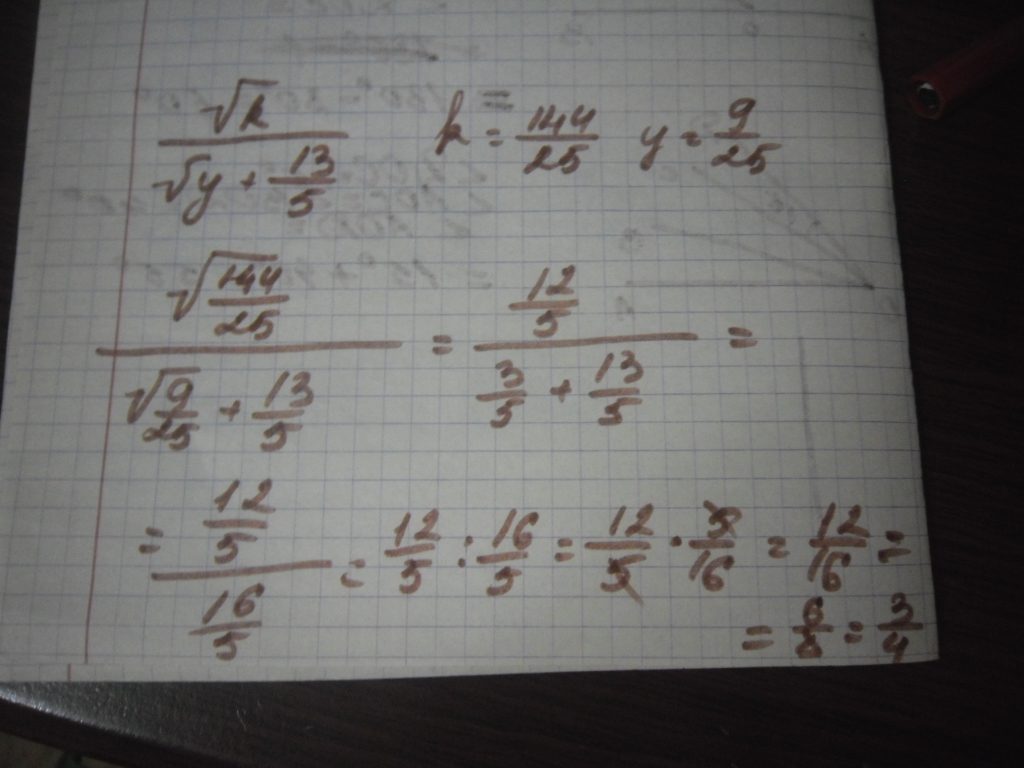 √k / (√y + 13/5) k = 144/25 y = 9/25
√(144/25) / (√(9/25) + 13/5) = (12/5) / (3/5 + 13/5) =
= (12/5) / (16/5) = 12/5 : 16/5 = 12/5 · 5/16 = 12/16 =
= 6/8 = 3/4